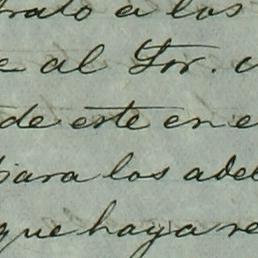 trato a los
e al Sor.
de este en e
para los adel
que haya re